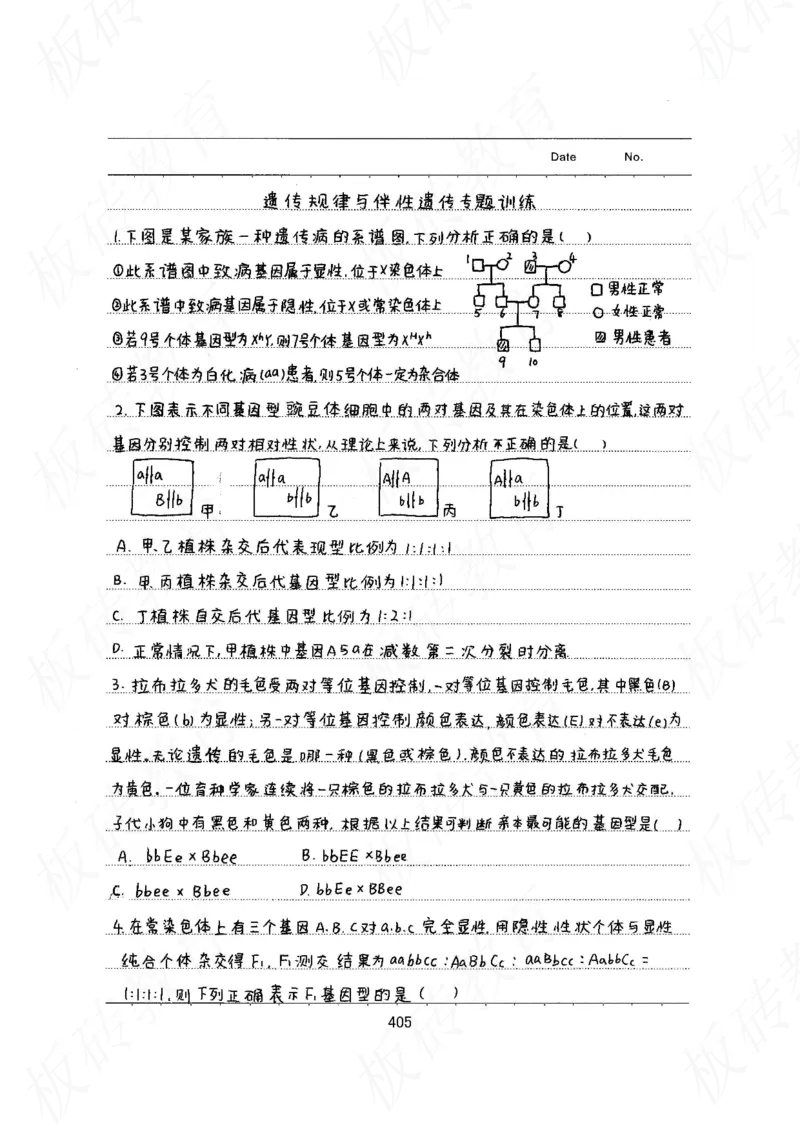 Date No.
遗传规律与伴性遗传专题训练
1.下图是某家族一种遗传病的系谱图,下列分析正确的是( )
①此系谱图中致病基因属于显性,位于X染色体上
②此系谱中致病基因属于隐性,位于X或常染色体上
③若9号个体基因型为XʰY,则7号个体基因型为XᴴXʰ
④若3号个体为白化病(aa)患者,则5号个体一定为杂合体
1 2 3 4
男性正常
5 6 7 8
女性正常
男性患者
9 10
2.下图表示不同基因型豌豆体细胞中的两对基因及其在染色体上的位置,这两对
基因分别控制两对相对性状,从理论上来说,下列分析不正确的是( )
a a B b 甲
a a b b 乙
A A b b 丙
A a b b 丁
A. 甲、乙植株杂交后代表现型比例为1:1:1:1
B. 甲、丙植株杂交后代基因型比例为1:1:1:1
C. 丁植株自交后代基因型比例为1:2:1
D. 正常情况下,甲植株中基因A与a在减数第二次分裂时分离
3.拉布拉多犬的毛色受两对等位基因控制,一对等位基因控制毛色,其中黑色(B)
对棕色(b)为显性;另一对等位基因控制颜色表达,颜色表达(E)对不表达(e)为
显性。无论遗传的毛色是哪一种(黑色或棕色),颜色不表达的拉布拉多犬毛色
为黄色。一位育种学家连续将一只棕色的拉布拉多犬与一只黄色的拉布拉多犬交配,
子代小狗中有黑色和黄色两种,根据以上结果可判断亲本最可能的基因型是( )
A. bbEe×Bbee B. bbEE×Bbee
C. bbee×Bbee D. bbEe×BBee
4.在常染色体上有三个基因A.B.C对a.b.c完全显性,用隐性性状个体与显性
纯合个体杂交得F₁,F₁测交结果为aabbcc:AaBbCc:aaBbcc:AabbCc=
1:1:1:1,则下列正确表示F₁基因型的是( )
405
板砖教育